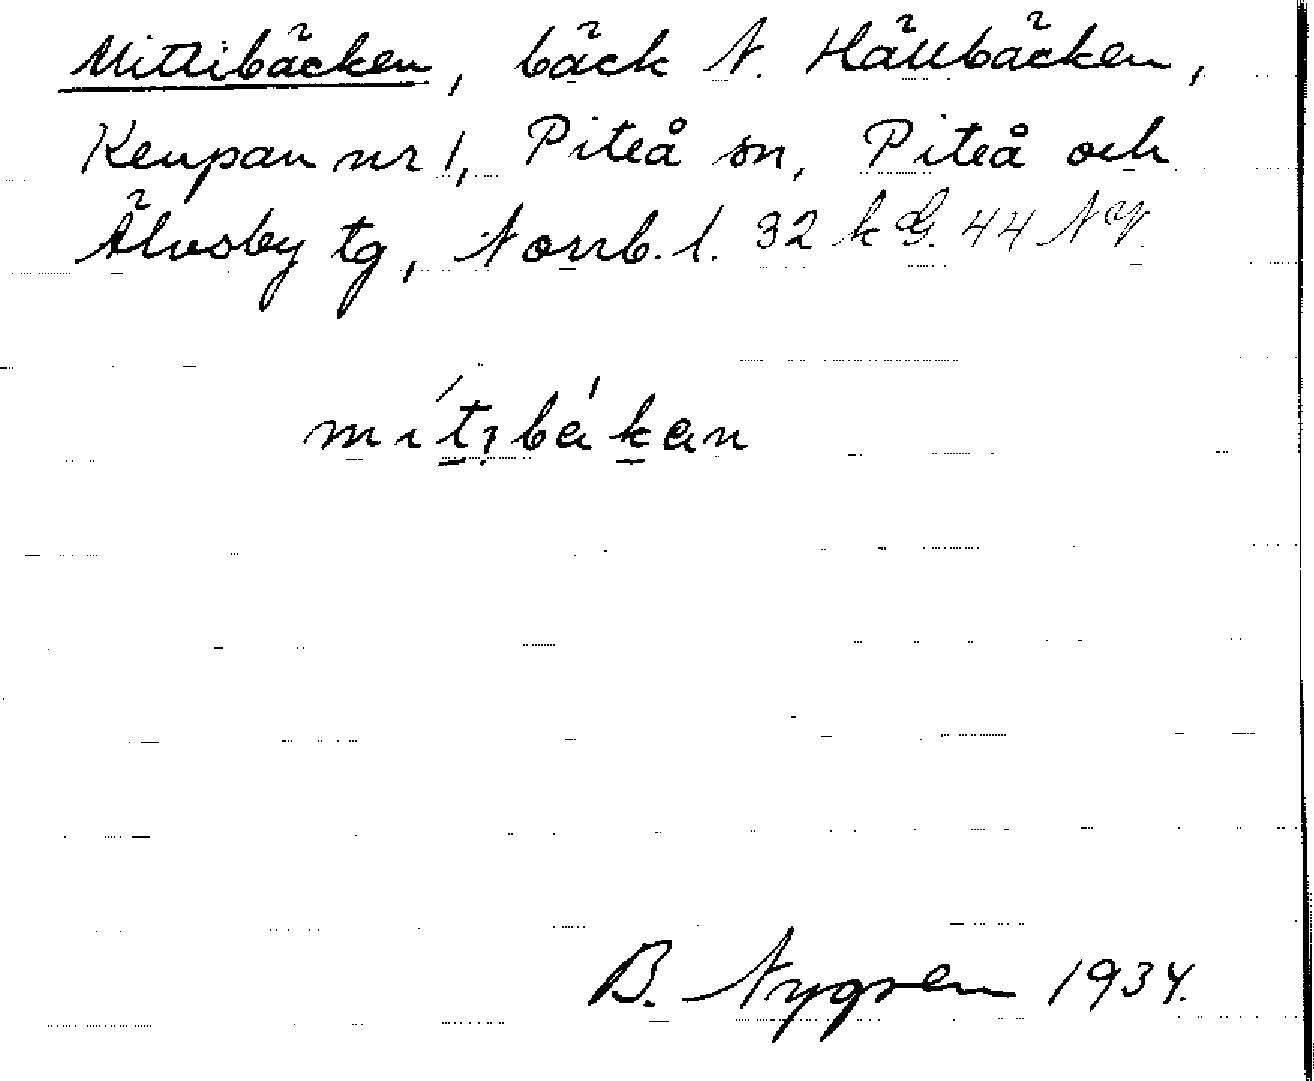 Mittibäcken, bäck N. Hällbäcken,
Keupan nr 1, Piteå sn, Piteå och
Älvsby tg, Norrb. l. 32 k G. 44 NV.
mítıbákan
B. Nygren 1934.